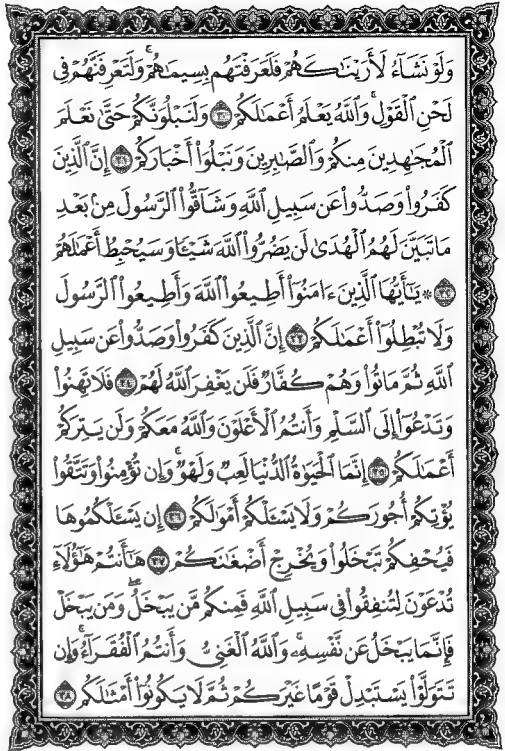 وَلَوْ نَشَآءُ لَأَرَيْنَٰكَهُمْ فَلَعَرَفْتَهُم بِسِيمَٰهُمْ ۚ وَلَتَعْرِفَنَّهُمْ فِى
لَحْنِ ٱلْقَوْلِ ۚ وَٱللَّهُ يَعْلَمُ أَعْمَٰلَكُمْ ٣٠ وَلَنَبْلُوَنَّكُمْ حَتَّىٰ نَعْلَمَ
ٱلْمُجَٰهِدِينَ مِنكُمْ وَٱلصَّٰبِرِينَ وَنَبْلُوَا۟ أَخْبَارَكُمْ ٣١ إِنَّ ٱلَّذِينَ
كَفَرُوا۟ وَصَدُّوا۟ عَن سَبِيلِ ٱللَّهِ وَشَآقُّوا۟ ٱلرَّسُولَ مِنۢ بَعْدِ
مَا تَبَيَّنَ لَهُمُ ٱلْهُدَىٰ لَن يَضُرُّوا۟ ٱللَّهَ شَيْـًٔا وَسَيُحْبِطُ أَعْمَٰلَهُمْ
٣٢ * يَٰٓأَيُّهَا ٱلَّذِينَ ءَامَنُوٓا۟ أَطِيعُوا۟ ٱللَّهَ وَأَطِيعُوا۟ ٱلرَّسُولَ
وَلَا تُبْطِلُوٓا۟ أَعْمَٰلَكُمْ ٣٣ إِنَّ ٱلَّذِينَ كَفَرُوا۟ وَصَدُّوا۟ عَن سَبِيلِ
ٱللَّهِ ثُمَّ مَاتُوا۟ وَهُمْ كُفَّارٌ فَلَن يَغْفِرَ ٱللَّهُ لَهُمْ ٣٤ فَلَا تَهِنُوا۟
وَتَدْعُوٓا۟ إِلَى ٱلسَّلْمِ وَأَنتُمُ ٱلْأَعْلَوْنَ وَٱللَّهُ مَعَكُمْ وَلَن يَتِرَكُمْ
أَعْمَٰلَكُمْ ٣٥ إِنَّمَا ٱلْحَيَوٰةُ ٱلدُّنْيَا لَعِبٌ وَلَهْوٌ ۚ وَإِن تُؤْمِنُوا۟ وَتَتَّقُوا۟
يُؤْتِكُمْ أُجُورَكُمْ وَلَا يَسْـَٔلْكُمْ أَمْوَٰلَكُمْ ٣٦ إِن يَسْـَٔلْكُمُوهَا
فَيُحْفِكُمْ تَبْخَلُوا۟ وَيُخْرِجْ أَضْغَٰنَكُمْ ٣٧ هَٰٓأَنتُمْ هَٰٓؤُلَآءِ
تُدْعَوْنَ لِتُنفِقُوا۟ فِى سَبِيلِ ٱللَّهِ فَمِنكُم مَّن يَبْخَلُ ۖ وَمَن يَبْخَلْ
فَإِنَّمَا يَبْخَلُ عَن نَّفْسِهِۦ ۚ وَٱللَّهُ ٱلْغَنِىُّ وَأَنتُمُ ٱلْفُقَرَآءُ ۚ وَإِن
تَتَوَلَّوْا۟ يَسْتَبْدِلْ قَوْمًا غَيْرَكُمْ ثُمَّ لَا يَكُونُوٓا۟ أَمْثَٰلَكُم ٣٨